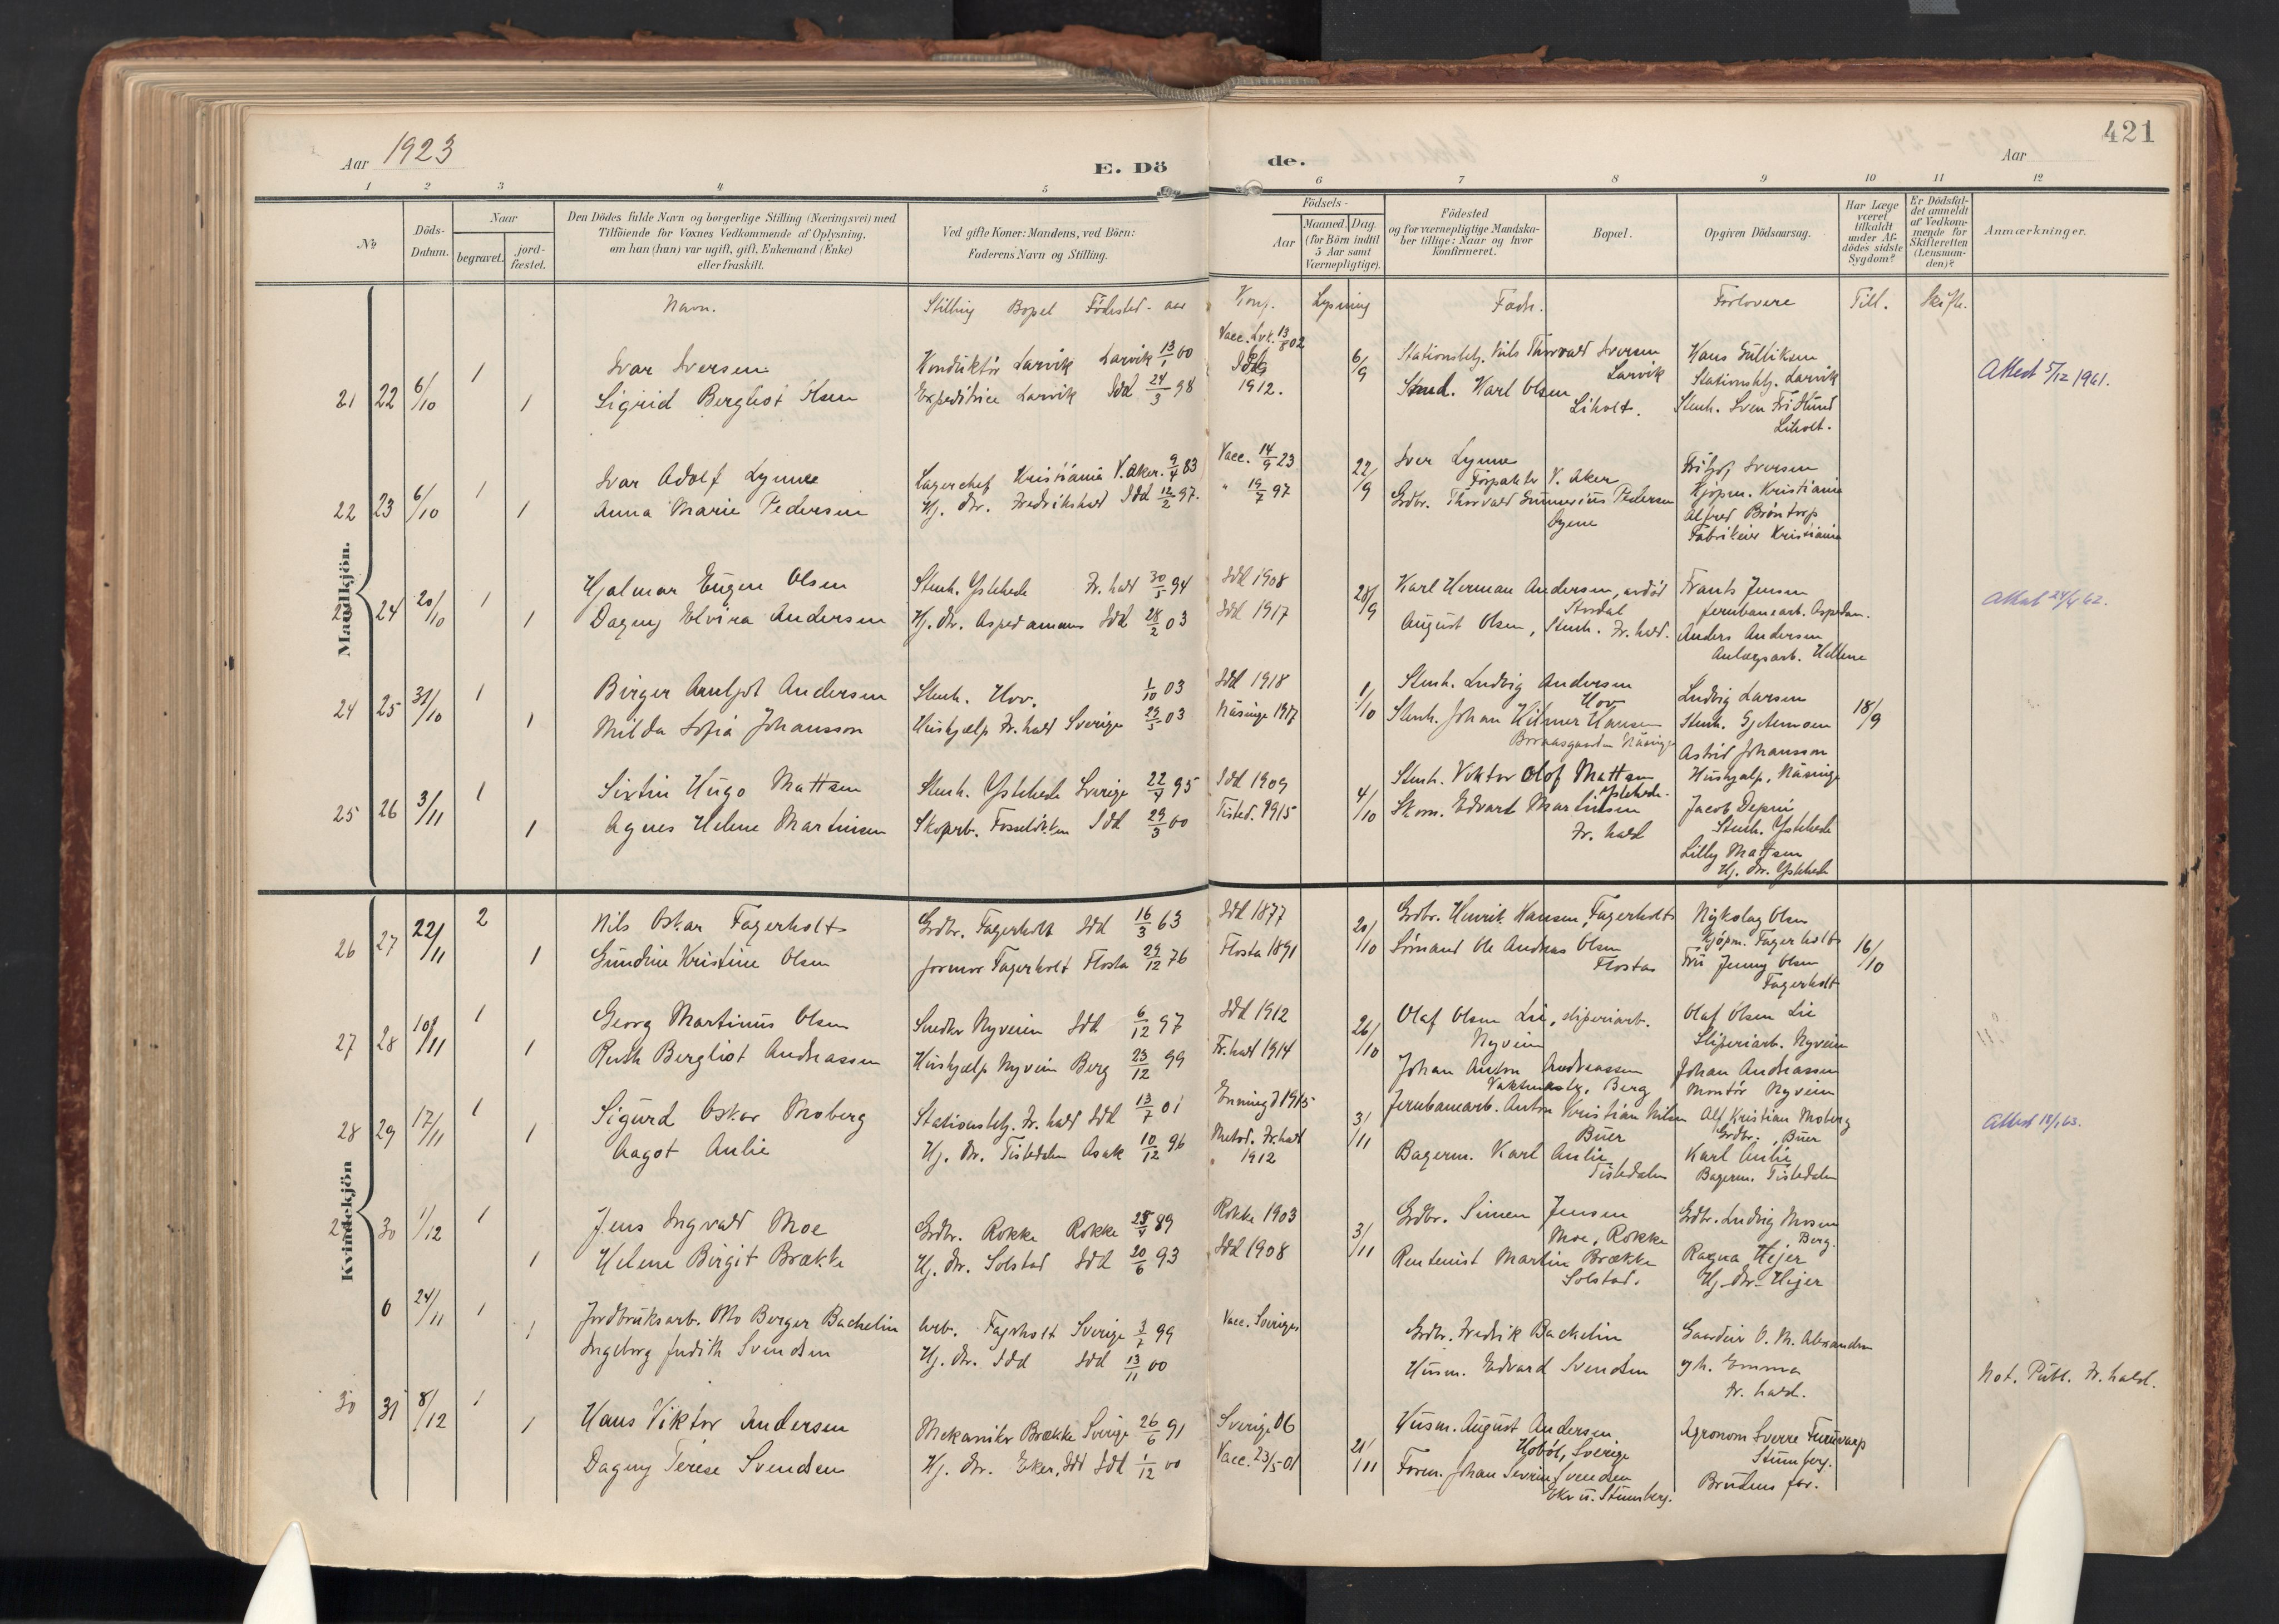 421
Aar 1923
E. Dö de.
Aar
1 2 3 4 5 6 7 8 9 10 11 12
№
Döds-Datum.
Naar
begravet.
jord-fæstet.
Den Dödes fulde Navn og borgerlige Stilling (Næringsvei) med
Tilföiende for Voxnes Vedkommende af Oplysning,
om han (hun) var ugift, gift, Enkemand (Enke)
eller fraskilt.
Ved gifte Koner: Mandens, ved Börn:
Faderens Navn og Stilling.
Födsels-
Aar
Maaned. Dag.
(for Börn indtil
5 Aar samt
Værnepligtige).
Födested
og for værnepligtige Mandska-
ber tillige: Naar og hvor
konfirmeret.
Bopæl.
Opgiven Dödsaarsag.
Har Læge
været
tilkaldt
under Af-
dödes sidste
Sygdom?
Er Dödsfal-
det anmeldt
af Vedkom-
mende for
Skifteretten
(Lensman-
den)?
Anmærkninger.
Mandkjön.
Kvindekjön
Navn. Stilling Bopel Födested - aar Konf. Lysning Fadr. Forlovere Till. Skifte.
21 22 6/10 1 Ivar Iversen Konduktör Larvik Larvik 13/1 00 Vacc. Lvk. 13/8 02 6/9 Stationsbetj. Nils Thorvald Iversen Larvik Hans Gulliksen Stationsbetj. Larvik Attest 5/12 1961.
1 Sigrid Bergliot Olsen Expeditrice Larvik Idd 24/3 98 Idd 1912. Karl Olsen Liholt. Stenh. Sven Fritlund Liholt.
22 23 6/10 1 Ivar Adolf Lynne Lagerchef Kristiania V. Aker. 9/4 83 Vacc. 14/9 23 22/9 Iver Lynne Forpakter V. Aker Fritjof Iversen Kjöpm. Kristiania
1 Anna Marie Pedersen Hj. dtr. Fredrikshald Idd 12/2 97. " 19/7 97 Grdbr. Thorvald Gunnerius Pedersen Alfred Bröntorp Fabrikeier Kristiania
24 20/10 1 Hjalmar Eugen Olsen Stenh. Ystehede Fr. hald 30/5 94 Idd 1908 28/9 Karl Herman Andersen, Frants Jensen Jernbanearb. Aspedam. Attest 24/4 62.
1 Dagny Elvira Andersen Hj. dtr. Aspedammen Idd 28/2 03 Idd 1917 August Olsen, Stenh. Fr. hald. Anders Andersen Anlægsarb.
24 25 31/10 1 Birger Arnljot Andersen Stenh. Hov. 1/10 03 Idd 1918 1/10 Stenh. Ludvig Andersen Hov Ludvig Larsen Stenh. 18/9
1 Milda Sofia Johansson Hushjælp Fr. hald Sverige 29/5 03 Näsinge 1917 Stenh. Johan Hilmer Hansen Näsinge Astrid Johansson Hushjælp, Näsinge
25 26 3/11 1 Sixten Hugo Mattsen Stenh. Ystehede Sverige 22/7 95 Idd 1909 4/10 Stenh. Viktor Olof Mattsen Ystehede. Jacob Stenh. Ystehede
1 Agnes Helene Martinsen Skoarb. Fosselökken Idd 29/3 00 Tisted. 1915 Skom. Edvart Martinsen Fr. hald Lilly Mattsen Hj. dtr. Ystehede
26 27 22/11 2 Nils Oskar Fagerholt Grdbr. Fagerholt Idd 16/3 63 Idd 1877 20/10 Grdbr. Henrik Hansen, Fagerholt Nykolay Olsen Kjöpm. Fagerholt 16/10
1 Gundine Kristine Olsen Jormor Fagerholt Flosta 29/12 76 Flosta 1891 Sömand Ole Andreas Olsen Flosta Fru Jenny Olsen Fagerholt
27 28 10/11 1 Georg Martinus Olsen Snedker Nyveien Idd 6/12 97 Idd 1912 26/10 Olaf Olsen Lie, sliperiarb. Nyveien Olaf Olsen Lie Sliperiarb. Nyveien
1 Ruth Bergliot Andreassen Hushjælp Nyveien Berg 23/12 99 Fr. hald 1914 Johan Anton Andreassen Vaktmester, Berg Johan Andreassen Montör Nyveien
28 29 17/11 1 Sigurd Oskar Moberg Stationsbetj. Fr. hald Idd 13/7 01 Enningd 1915 3/11 Jernbanearb. Anton Kristian Nilsen Buer Alf Kristian Moberg Grdbr., Buer Attest
1 Aagot Anlie Hj. dtr. Tistedalen Asak 10/12 96 Metod. Fr. hald 1912 Bagerm. Karl Anlie Tistedalen Karl Anlie Bagerm. Tistedalen
30 1/12 1 Jens Ingvald Moe Grdbr. Rokke Rokke 89 Rokke 1903 3/11 Grdbr. Simen Jensen Moe, Rokke Grdbr. Ludvig Mosen Berg.
1 Helene Birgit Brække Hj. dtr. Solstad Idd 20/6 93 Idd 1908 Rentenist Martin Brække Solstad. Ragna Hejer Hj. dtr. Hejer
0 24/11 1 Jordbruksarb. Otto Berger Bachelin Arb. Fagerholt Sverige 3/7 99 Vacc. Sverige Grdbr. Fredrik Backelin Gaardeier O. M. Alexandersen
1 Ingeborg Judith Svendsen Hj. dtr. Idd Idd 13/11 00 Husm. Edvard Svendsen og h. Emma Fr. hald. Not. Publ. Fr. hald.
30 31 8/12 1 Hans Viktor Andersen Mekaniker Brække Sverige 26/6 91 Sverige 06 21/11 Husm. August Andersen Hoböl, Sverige Agronom Sverre Furuvarp Stumberg.
1 Dagny Terese Svendsen Hj. dtr. Eker, Idd Idd 1/12 00 Vacc. 23/5 01 Form. Johan Severin Svendsen Eker u. Stumberg. Brudens far.